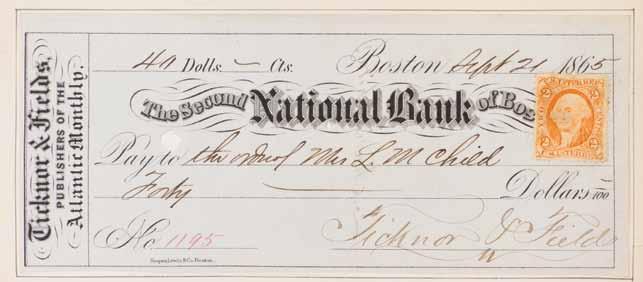 Ticknor & Fields,
PUBLISHERS OF THE
Atlantic Monthly.
40 Dolls. — Cts. Boston Sept 21 1865
The Second National Bank of Bos
Pay to the order of Mrs L. M Child
Forty Dollars 100
No 1195 Ticknor & Fields